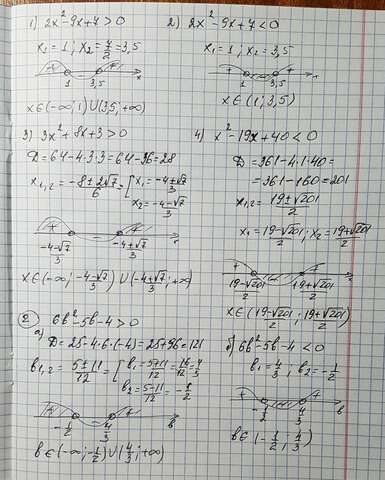 1) 2x²-9x+7>0
x₁=1; x₂=7/2=3,5
+ - + x
1 3,5
x∈(-∞;1)∪(3,5;+∞)
2) 2x²-9x+7<0
x₁=1; x₂=3,5
+ - + x
1 3,5
x∈(1;3,5)
3) 3x²+8x+3>0
D=64-4·3·3=64-36=28
x₁,₂=(-8±2√7)/6=[x₁=(-4+√7)/3
x₂=(-4-√7)/3
+ - + x
(-4-√7)/3 (-4+√7)/3
x∈(-∞;(-4-√7)/3)∪((-4+√7)/3;+∞)
4) x²-19x+40<0
D=361-4·1·40=
=361-160=201
x₁,₂=(19±√201)/2
x₁=(19-√201)/2; x₂=(19+√201)/2
+ - + x
(19-√201)/2 (19+√201)/2
x∈((19-√201)/2;(19+√201)/2)
② 6b²-5b-4>0
а) D=25-4·6·(-4)=25+96=121
b₁,₂=(5±11)/12=[b₁=(5+11)/12=16/12=4/3
b₂=(5-11)/12=-1/2
+ - + b
-1/2 4/3
b∈(-∞;-1/2)∪(4/3;+∞)
б) 6b²-5b-4<0
b₁=4/3; b₂=-1/2
+ - + b
-1/2 4/3
b∈(-1/2;4/3)